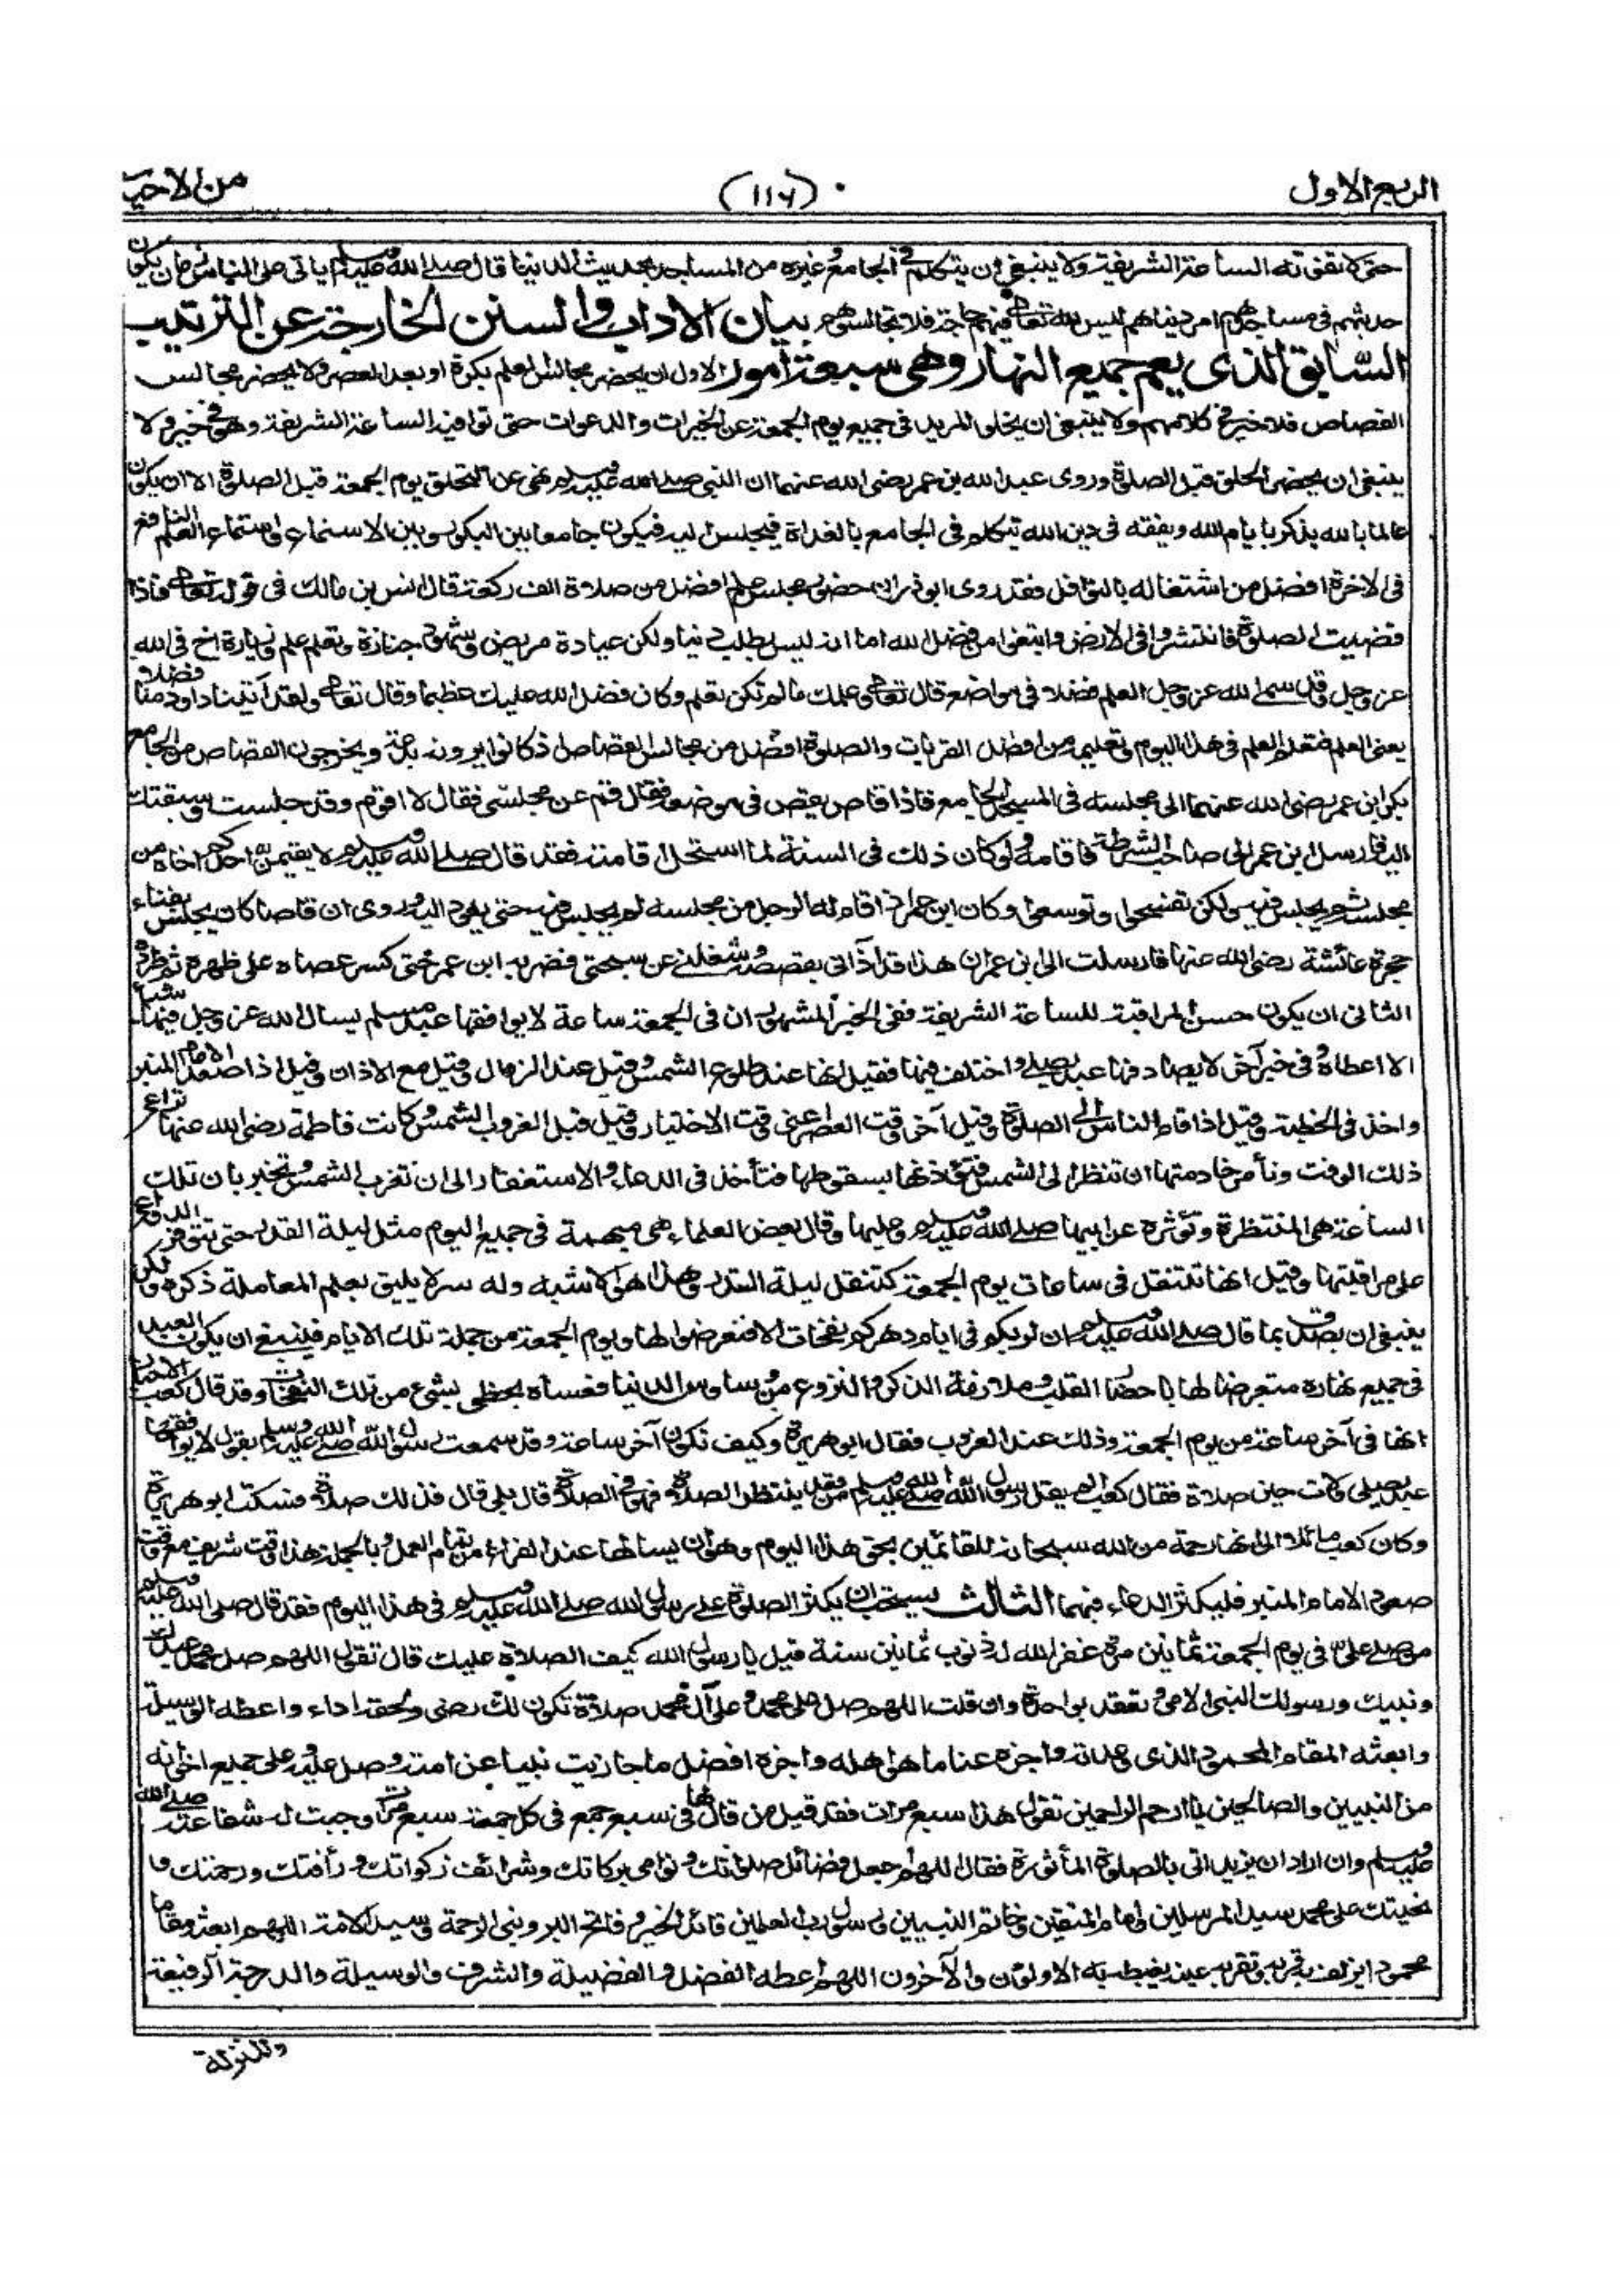 الربع الاول
(١١٦)
من الاحيا
حتى لا تفوته الساعة الشريفة ولا ينبغي ان يتكلم في الجامع وغيره من المساجد بحديث الدنيا قال صلى الله عليه وسلم ياتى على الناس زمان يكون
حديثهم في مساجدهم امر دنياهم ليس لله تعالى فيهم حاجة فلا تجالسوهم بيان الاداب والسنن الخارجة عن الترتيب
السابق الذى يعم جميع النهار وهى سبعة امور الاول ان يحضر مجالس العلم بكرة او بعد العصر ولا يحضر مجالس
القصاص فلا خير في كلامهم ولا ينبغى ان يخلو المريد فى جميع يوم الجمعة عن الخيرات والدعوات حتى توافيه الساعة الشريفة وهو في خير ولا
ينبغى ان يحضر الحلق قبل الصلوة وروى عبد الله بن عمر رضى الله عنهما ان النبى صلى الله عليه وسلم نهى عن التحلق يوم الجمعة قبل الصلوة الا ان يكون
عالما بالله يذكر بايام الله ويفقه فى دين الله يتكلم فى الجامع بالغداة فيجلس اليه فيكون جامعا بين البكور وبين الاستماع واستماع العلم النافع
فى الاخرة افضل من اشتغاله بالنوافل فقد روى ابو ذر ان حضور مجلس علم افضل من صلاة الف ركعة قال انس بن مالك فى قوله تعالى فاذا
قضيت الصلوة فانتشروا فى الارض وابتغوا من فضل الله اما انه ليس بطلب دنيا ولكن عيادة مريض وشهود جنازة وتعلم علم وزيارة اخ فى الله
عز وجل وقد سمى الله عز وجل العلم فضلا فى مواضع قال تعالى وعلمك ما لم تكن تعلم وكان فضل الله عليك عظيما وقال تعالى ولقد آتينا داود منا فضلا
يعنى العلم فتعلم العلم فى هذا اليوم وتعليمه من افضل القربات والصلوة افضل من مجالس القصاص اذ كانوا يرونه بدعة ويخرجون القصاص من الجامع
بكر ابن عمر رضى الله عنهما الى مجلسه فى المسجد الجامع فاذا قاص يقص فى موضعه فقال قم عن مجلسى فقال لا اقوم وقد جلست وسبقتك
اليه فارسل ابن عمر الى صاحب الشرطة فاقامه ولو كان ذلك فى السنة لما استحل اقامته فقد قال صلى الله عليه وسلم لا يقيمن احدكم اخاه من
مجلسه ثم يجلس فيه ولكن تفسحوا وتوسعوا وكان ابن عمر اذا قام له الرجل من مجلسه لم يجلس فيه حتى يعود اليه وروى ان قاصا كان يجلس بفناء
حجرة عائشة رضى الله عنها فارسلت الى ابن عمر ان هذا قد اذانى بقصصه وشغلنى عن سبحتى فضربه ابن عمر حتى كسر عصاه على ظهره ثم طرده
الثانى ان يكون حسن المراقبة للساعة الشريفة ففى الخبر المشهور ان فى الجمعة ساعة لا يوافقها عبد مسلم يسال الله عز وجل فيها شيأ
الا اعطاه وفى خبر آخر لا يصادفها عبد يصلى واختلف فيها فقيل انها عند طلوع الشمس وقيل عند الزوال وقيل مع الاذان وقيل اذا صعد الامام المنبر
واخذ فى الخطبة وقيل اذا قام الناس الى الصلوة وقيل آخر وقت العصر اعنى وقت الاختيار وقيل قبل الغروب الشمس وكانت فاطمة رضى الله عنها تراعى
ذلك الوقت وتأمر خادمتها ان تنظر الى الشمس فتؤذنها بسقوطها فتأخذ فى الدعاء والاستغفار الى ان تغرب الشمس وتخبر بان تلك
الساعة هى المنتظرة وتؤثره عن ابيها صلى الله عليه وسلم وعليها وقال بعض العلماء هى مبهمة فى جميع اليوم مثل ليلة القدر حتى تتوفر الدواعى
على مراقبتها وقيل انها تنتقل فى ساعات يوم الجمعة كتنقل ليلة القدر وهذا هو الاشبه وله سر لا يليق بعلم المعاملة ذكره ولكن
ينبغى ان يصدق بما قال صلى الله عليه وسلم ان لربكم فى ايام دهركم نفحات الا فتعرضوا لها ويوم الجمعة من جملة تلك الايام فلينبغى ان يكون العبد
فى جميع نهاره متعرضا لها باحضار القلب وملازمة الذكر والنزوع عن وساوس الدنيا فعساه يحظى بشئ من تلك النفحات وقد قال كعب الاحبار
انها فى آخر ساعة من يوم الجمعة وذلك عند الغروب فقال ابو هريرة وكيف تكون آخر ساعة وقد سمعت رسول الله صلى الله عليه وسلم يقول لا يوافقها
عبد يصلى ولات حين صلاة فقال كعب الم يقل رسول الله صلى الله عليه وسلم من قعد ينتظر الصلاة فهو فى الصلاة قال بلى قال فذلك صلاة فسكت ابو هريرة
وكان كعب مائلا الى انها رحمة من الله سبحانه للقائمين بحق هذا اليوم وهو ان يسالها عند الفراغ من تمام العمل وبالجملة هذا وقت شريف مع وقت
صعود الامام المنبر فليكثر الدعاء فيهما الثالث يستحب ان يكثر الصلوة على رسول الله صلى الله عليه وسلم فى هذا اليوم فقد قال صلى الله عليه وسلم
من صلى علىّ فى يوم الجمعة ثمانين مرة غفر الله له ذنوب ثمانين سنة قيل يا رسول الله كيف الصلاة عليك قال تقول اللهم صل على محمد عبدك
ونبيك ورسولك النبى الامى وتعقد بواحدة وان قلت اللهم صل على محمد وعلى آل محمد صلاة تكون لك رضى ولحقه اداء واعطه الوسيلة
وابعثه المقام المحمود الذى وعدته واجزه عنا ما هو اهله واجزه افضل ما جازيت نبيا عن امته وصل عليه وعلى جميع اخوانه
من النبيين والصالحين يا ارحم الراحمين تقول هذا سبع مرات فقد قيل من قالها فى سبع جمع فى كل جمعة سبع مرات وجبت له شفاعته صلى الله
عليه وسلم وان اراد ان يزيد اتى بالصلوة المأثورة فقال اللهم اجعل فضائل صلواتك ونوامى بركاتك وشرائف زكواتك ورأفتك ورحمتك و
تحيتك على محمد سيد المرسلين وامام المتقين وخاتم النبيين ورسول رب العلمين قائد الخير وفاتح البر ونبى الرحمة وسيد الامة اللهم ابعثه مقاما
محمودا تزلف به قربه وتقر به عينه يغبطه به الاولون والآخرون اللهم اعطه الفضل والفضيلة والشرف والوسيلة والدرجة الرفيعة
والمنزلة